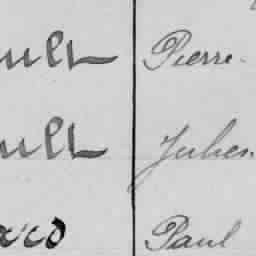 ult Pierre
ult Julien
Paul